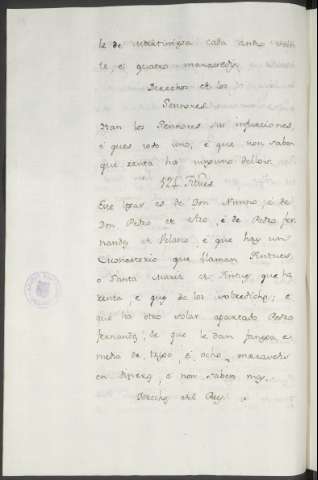 le de Martiniega cada anno vein
te, et quatro maravedis.
Derechos de los
Sennores.
Dan los Sennores sus infurciones,
é que es todo uno, é que non saben
que renta ha ninguno dellos.
Este logar es de Don Nunno, é de
Don Pedro et de Pedro fer
nandez et é que hay un
Monesterio que llaman
o Santa Maria de que ha
renta, e que de los sobredichos, e
que ha otro solar apartado Pedro
fernandez, de que le dan fanega, e
media de trigo, é, ocho maravedis
en dineros, e non saben mas.
Derechos del Rey.